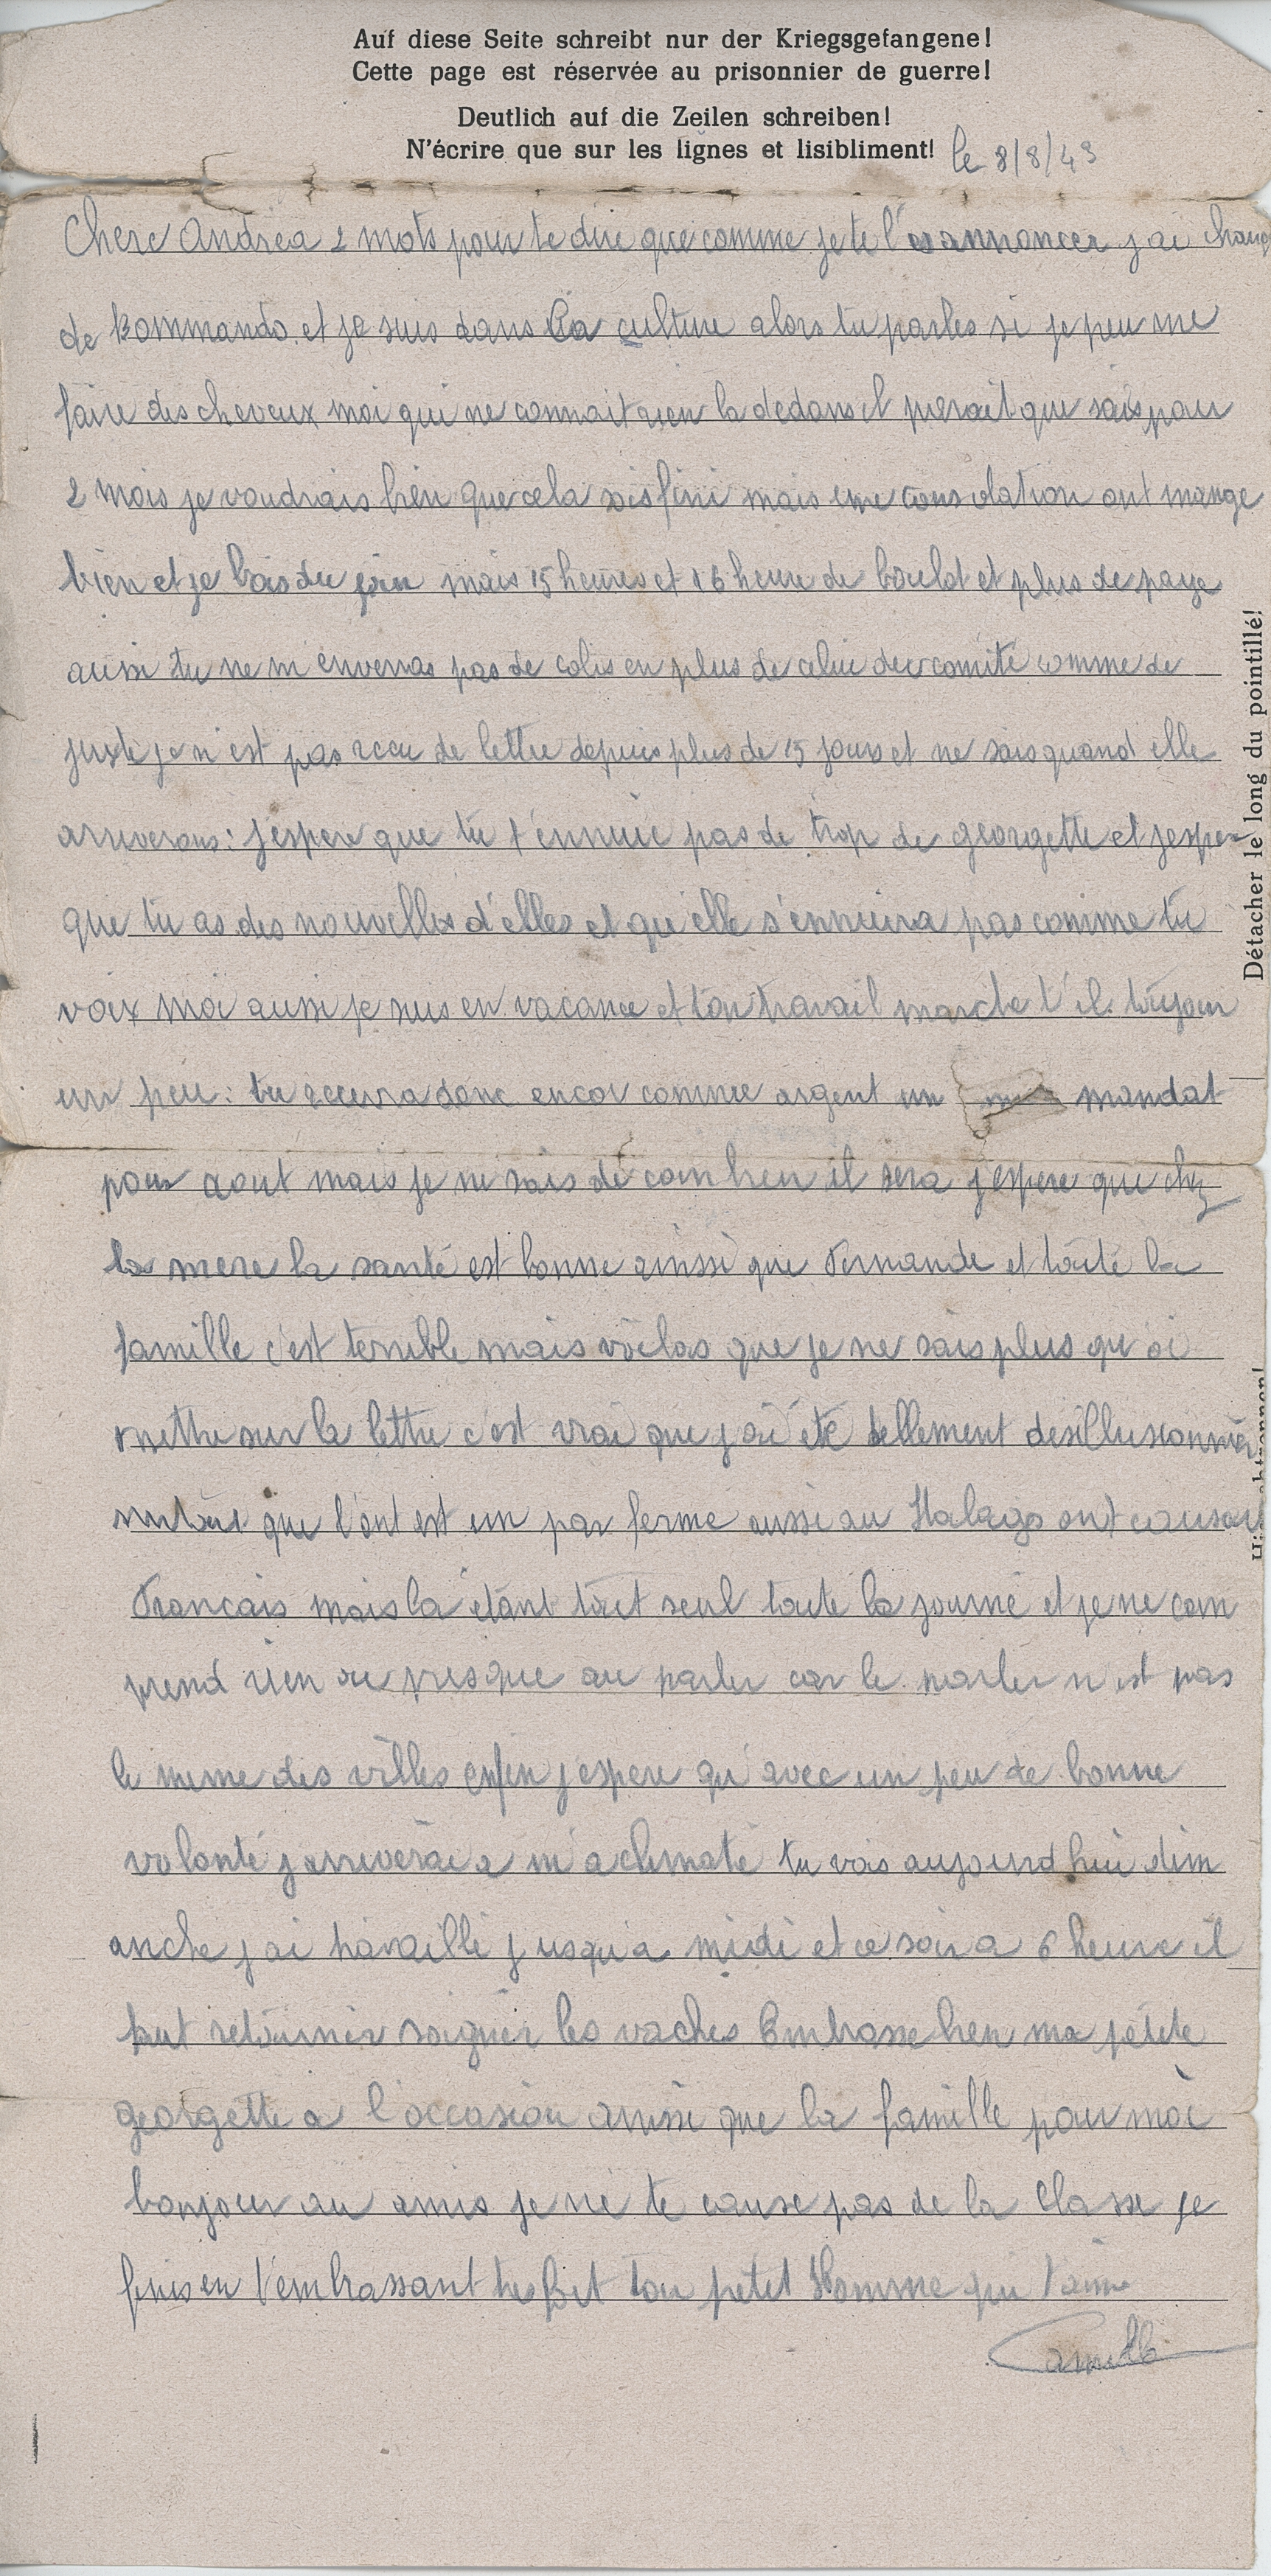 Auf diese Seite schreibt nur der Kriegsgefangene!
Cette page est réservée au prisonnier de guerre!
Deutlich auf die Zeilen schreiben!
N'écrire que sur les lignes et lisibliment!
le 8/8/43
Chere Andrea 2 mots pour te dire que comme je te l' annoncer j ai chang
de Kommando. et je suis dans la culture alors tu parles si je peu me
faire des cheveux moi qui ne connait rien la dedans il parait que sais pour
2 mois je voudrais bien que cela sois fini mais une consolation ont mange
bien et je bois du mais 15 heures et 16 heure de boulot et plus de paye
aussi tu ne m enverras pas de colis en plus de celui du comité comme de
juste je n'est pas recu de lettre depuis plus de 15 jours et ne sais quand elle
arriverons: j'espere que tu t'ennuie pas de trop de georgette et j espere
que tu as des nouvelles d'elles et qu'elle s'ennuiera pas comme tu
voix moi aussi je suis en vacance et ton travail marche t'il. toujour
un peu: tu recevra donc encor comme argent un mandat
pour aout mais je ne sais de combien il sera j espere que chez
la mere la santé est bonne ainssi que Fernande et toute la
famille c'est terrible mais voilas que je ne sais plus qu oi
mettre sur la lettre c'est vrai que j ai été tellement desillusionner
surtout que l'ont est un par ferme aussi au Stalags ont causai
Francais mais la étant tout seul toute la journé et je ne com
prend rien ou presque au parler car le parler n'est pas
le meme des villes enfin j espere qu'avec un peu de bonne
volonté j arriverai a m'aclimaté tu vois aujourd hui dim
anche j ai travaillé jusqu'a midi et ce soir a 6 heure il
faut retourner soigner les vaches Embrasse bien ma petite
georgette a l'occasion ainssi que la famille pour moi
bonjour au amis je ne te cause pas de la classe je
finis en t'embrassant tres fort ton petit Homme qui t'aime
Camille
Détacher le long du pointillé!